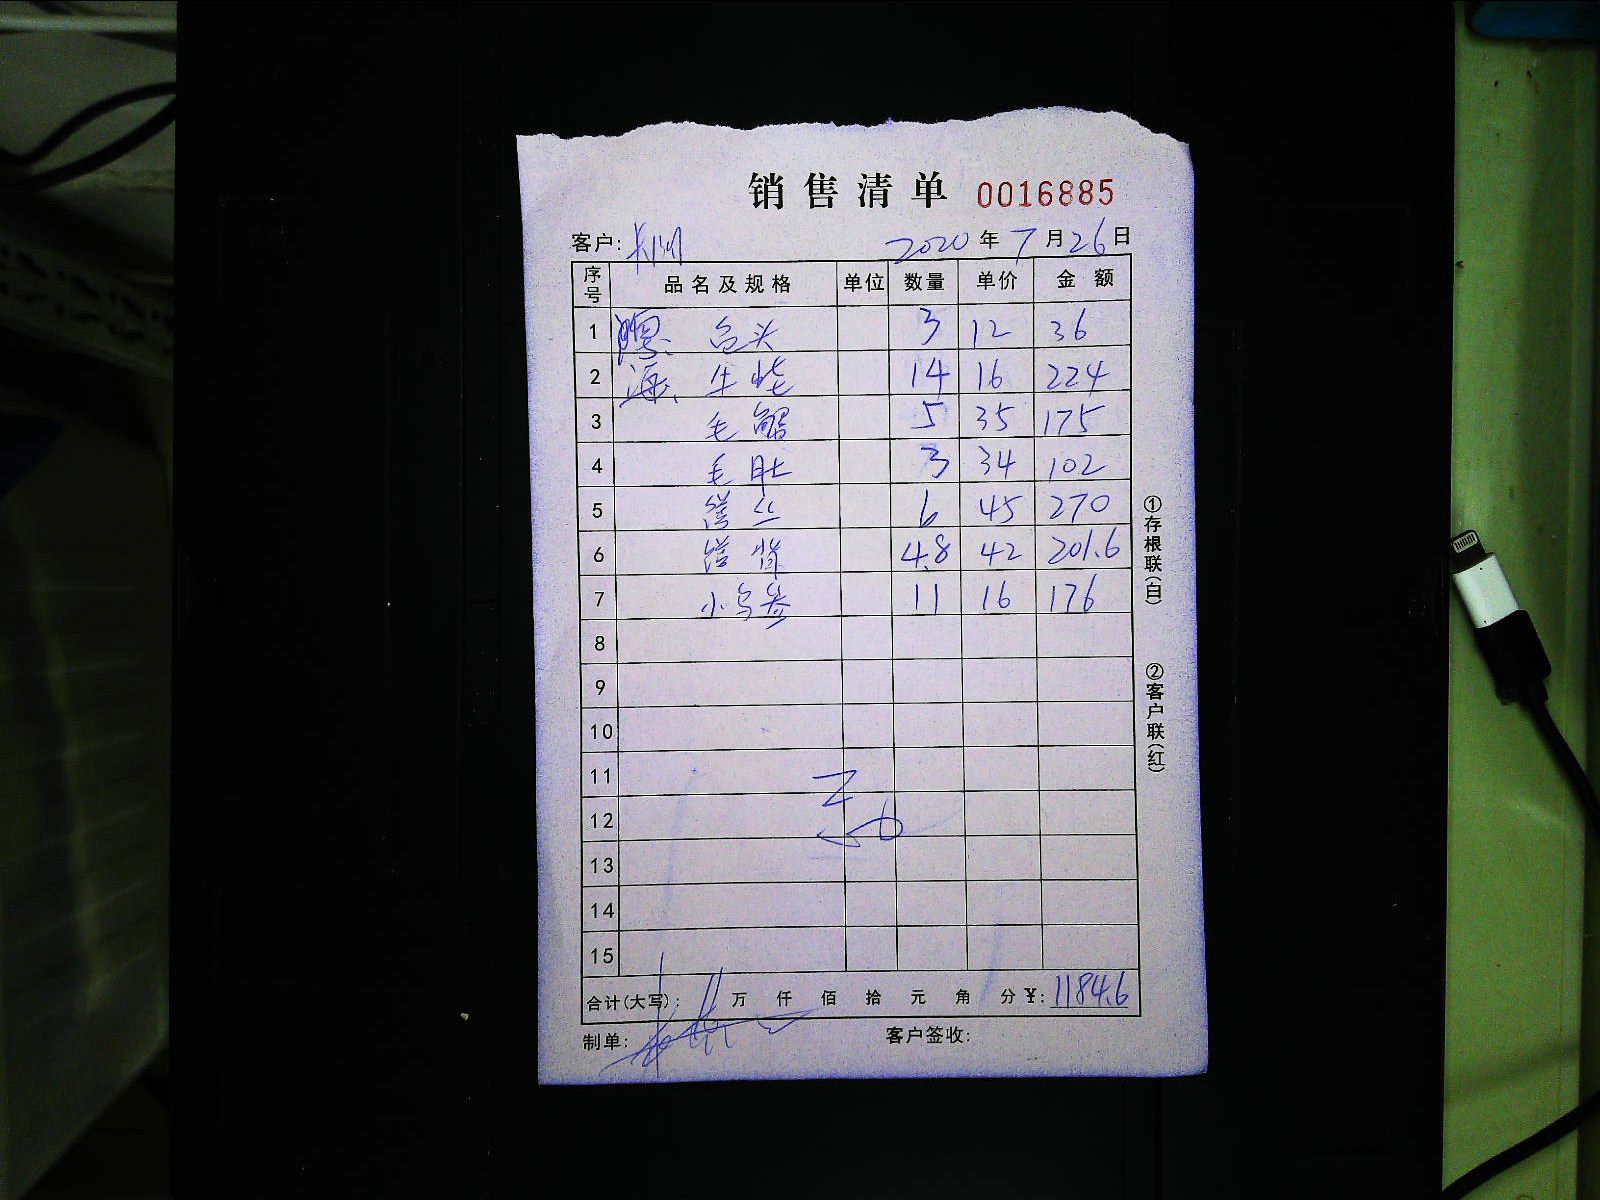 销售清单 0016885
客户: 2020年7月26日
序号 品名及规格 单位 数量 单价 金额
1 包头 3 12 36
2 海、生蚝 14 16 224
3 毛蟹 5 35 175
4 毛肚 3 34 102
5 丝 6 45 270
6 4.8 42 201.6
7 小乌参 11 16 176
8
9
10
11
12
13
14
15
合计(大写): 万 仟 佰 拾 元 角 分 ¥: 1184.6
制单: 客户签收:
①存根联(白)
②客户联(红)